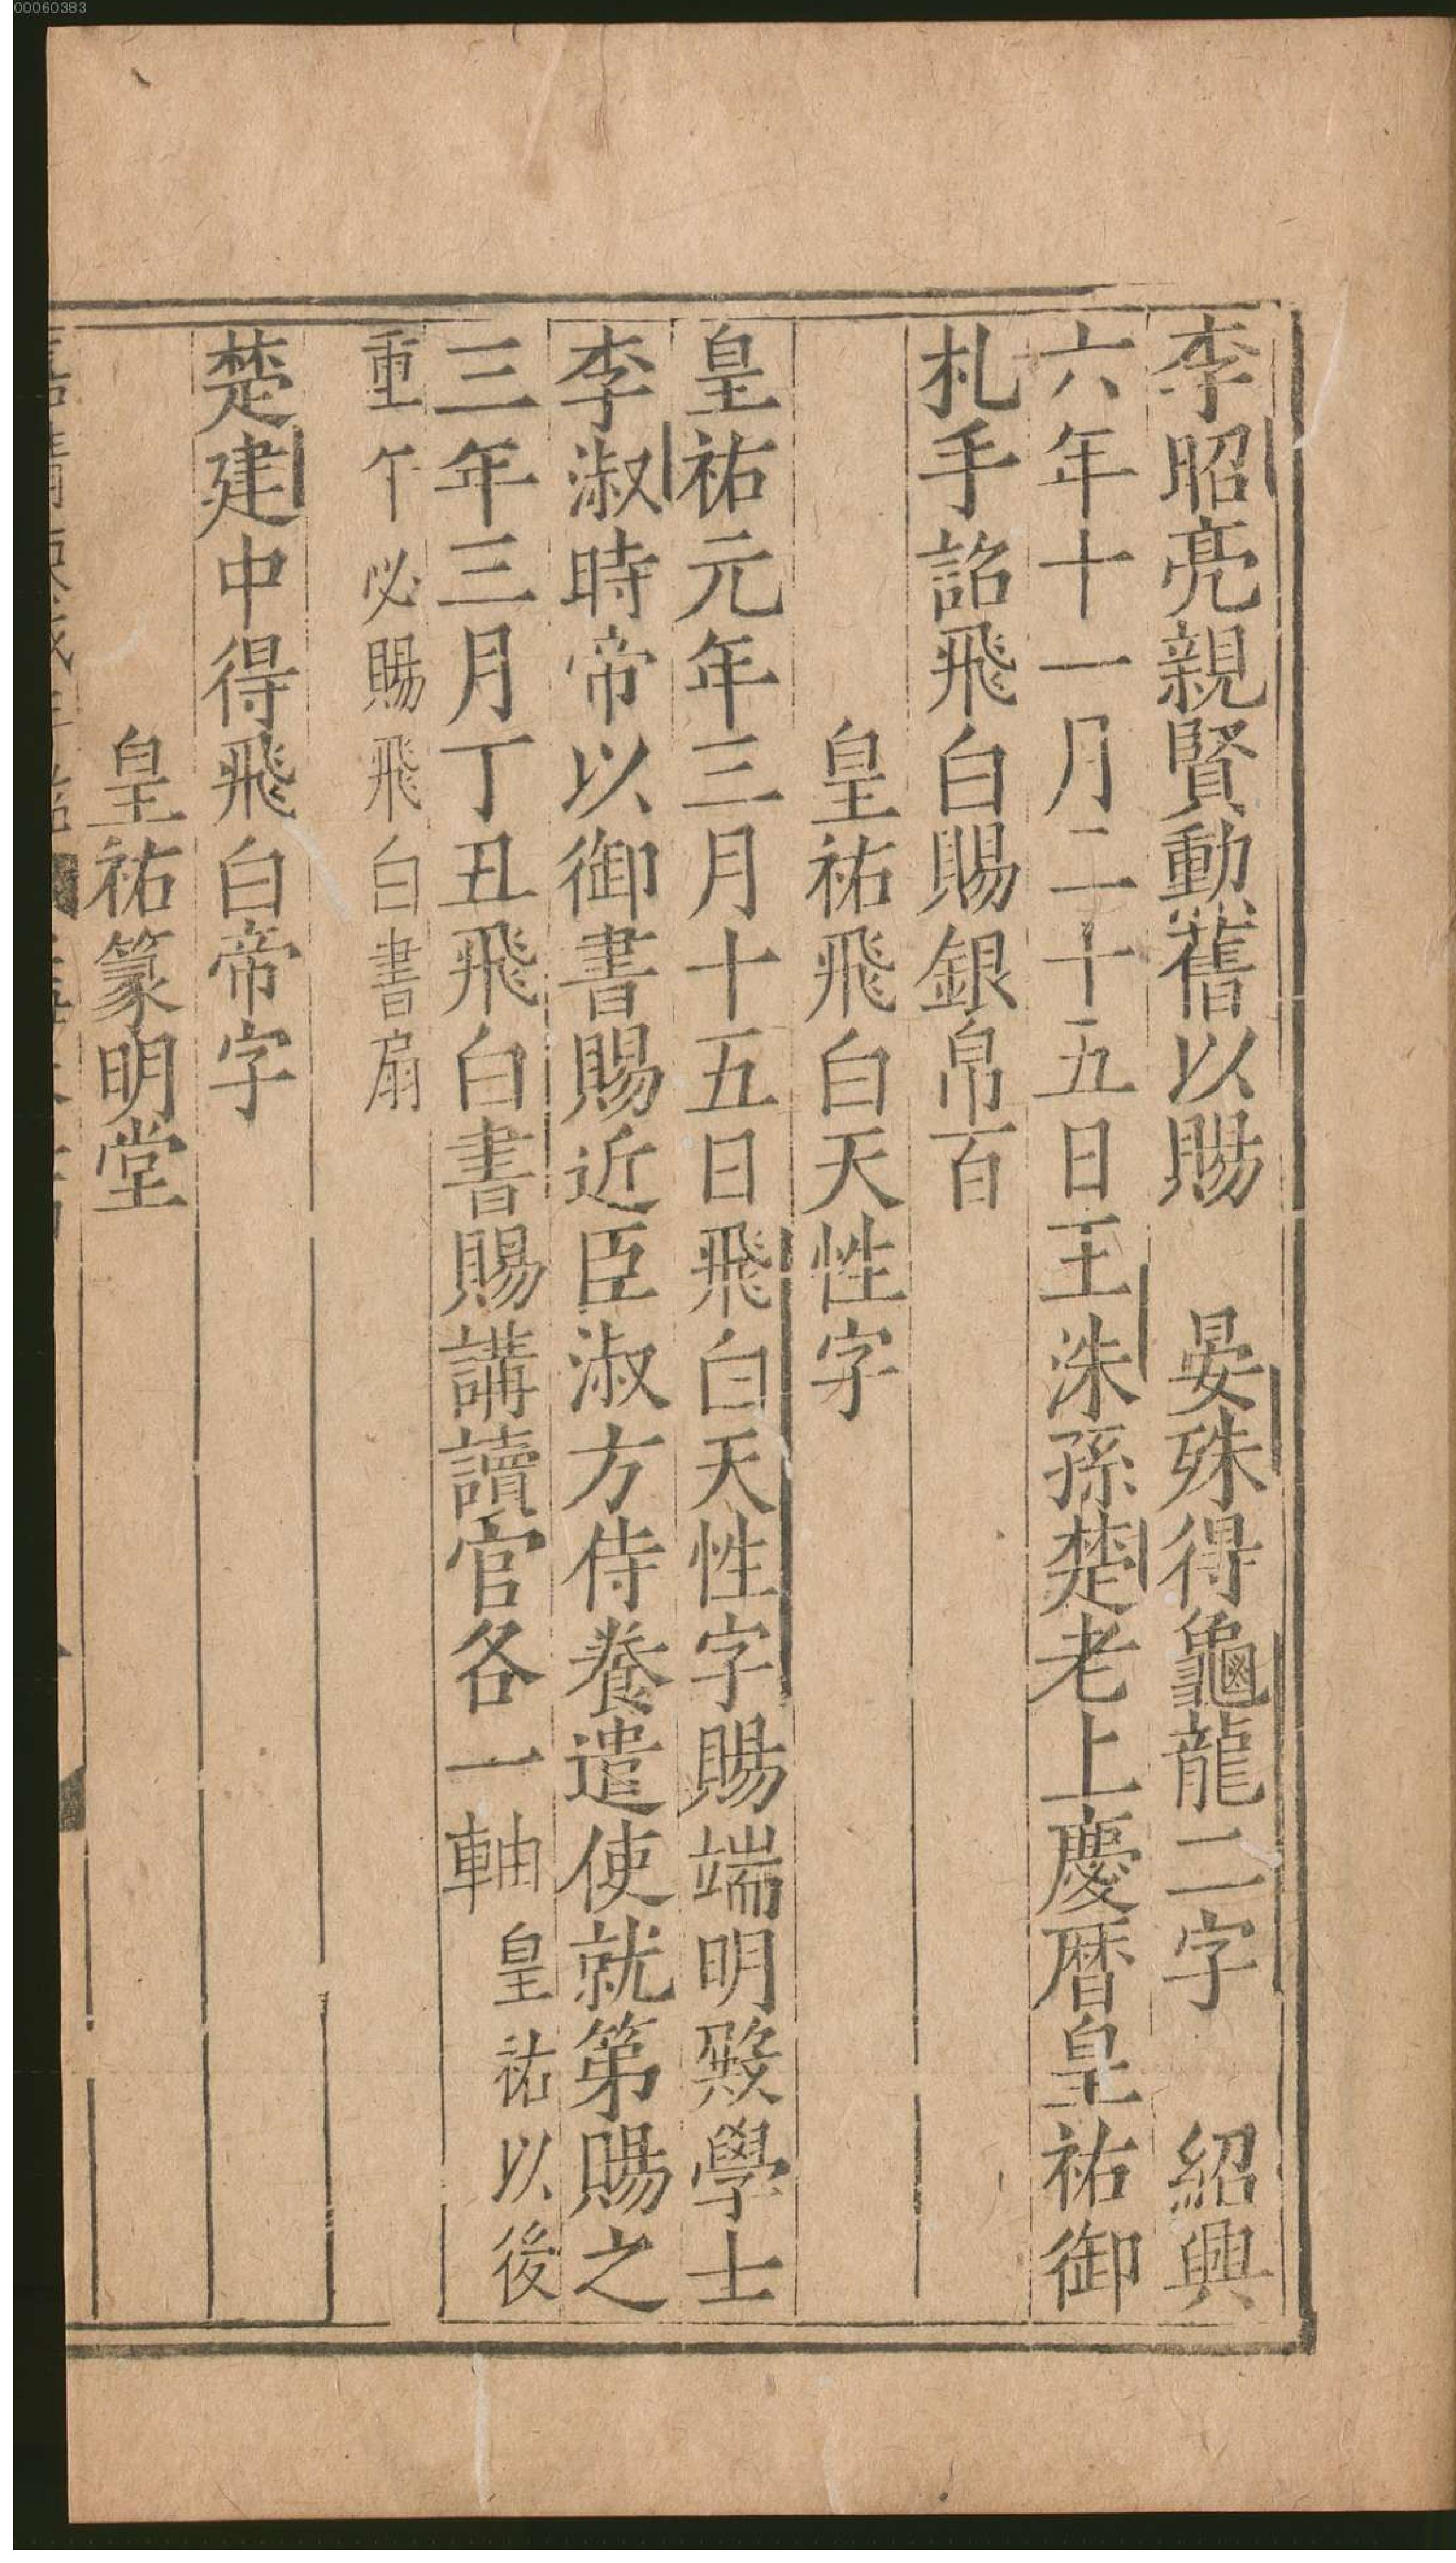 00060383
李昭亮親賢勳舊以賜　晏殊得龜龍二字　紹興
六年十一月二十五日王洙孫楚老上慶曆皇祐御
札手詔飛白賜銀帛百
皇祐飛白天性字
皇祐元年三月十五日飛白天性字賜端明殿學士
李淑時帝以御書賜近臣淑方侍養遣使就第賜之
三年三月丁丑飛白書賜講讀官各一軸皇祐以後
重午必賜飛白書扇
楚建中得飛白帝字
皇祐篆明堂